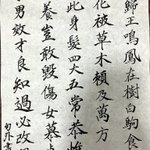 歸王鳴鳳在樹白駒食
化被草木賴及萬方
此身髮四大五常恭惟
養豈敢毀傷女慕
男效才良知過必改